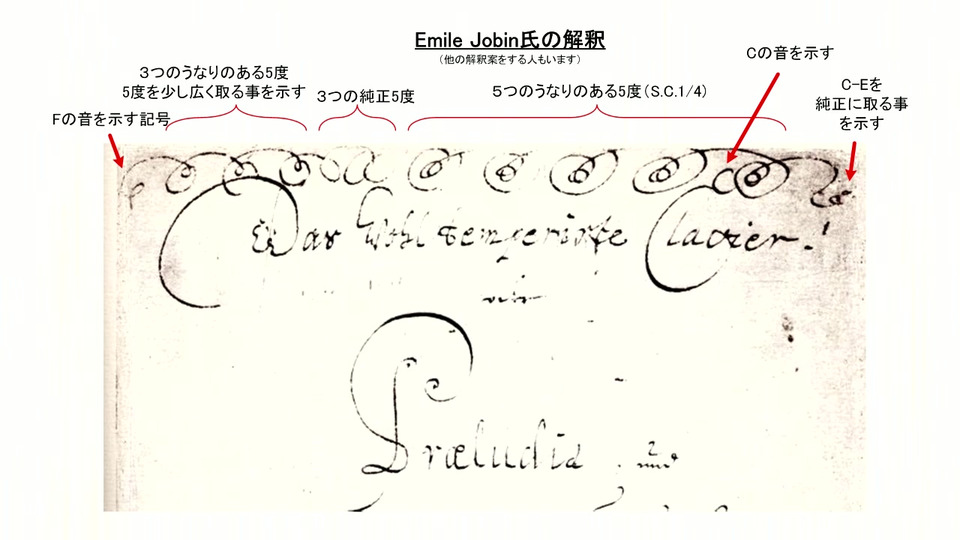 Emile Jobin氏の解釈
（他の解釈案をする人もいます）
Cの音を示す
3つのうなりのある5度
5度を少し広く取る事を示す
3つの純正5度
5つのうなりのある5度（S.C.1/4）
C−Eを
純正に取る事
を示す
Fの音を示す記号
Das Wohltemperirte Clavier.
oder
Præludia und